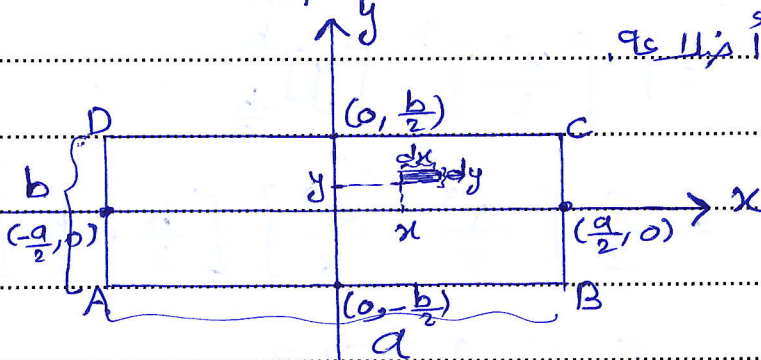 y
D (0, b/2) C
dx
y dy
b x
(-a/2, 0) x (a/2, 0)
A (0, -b/2) B
a